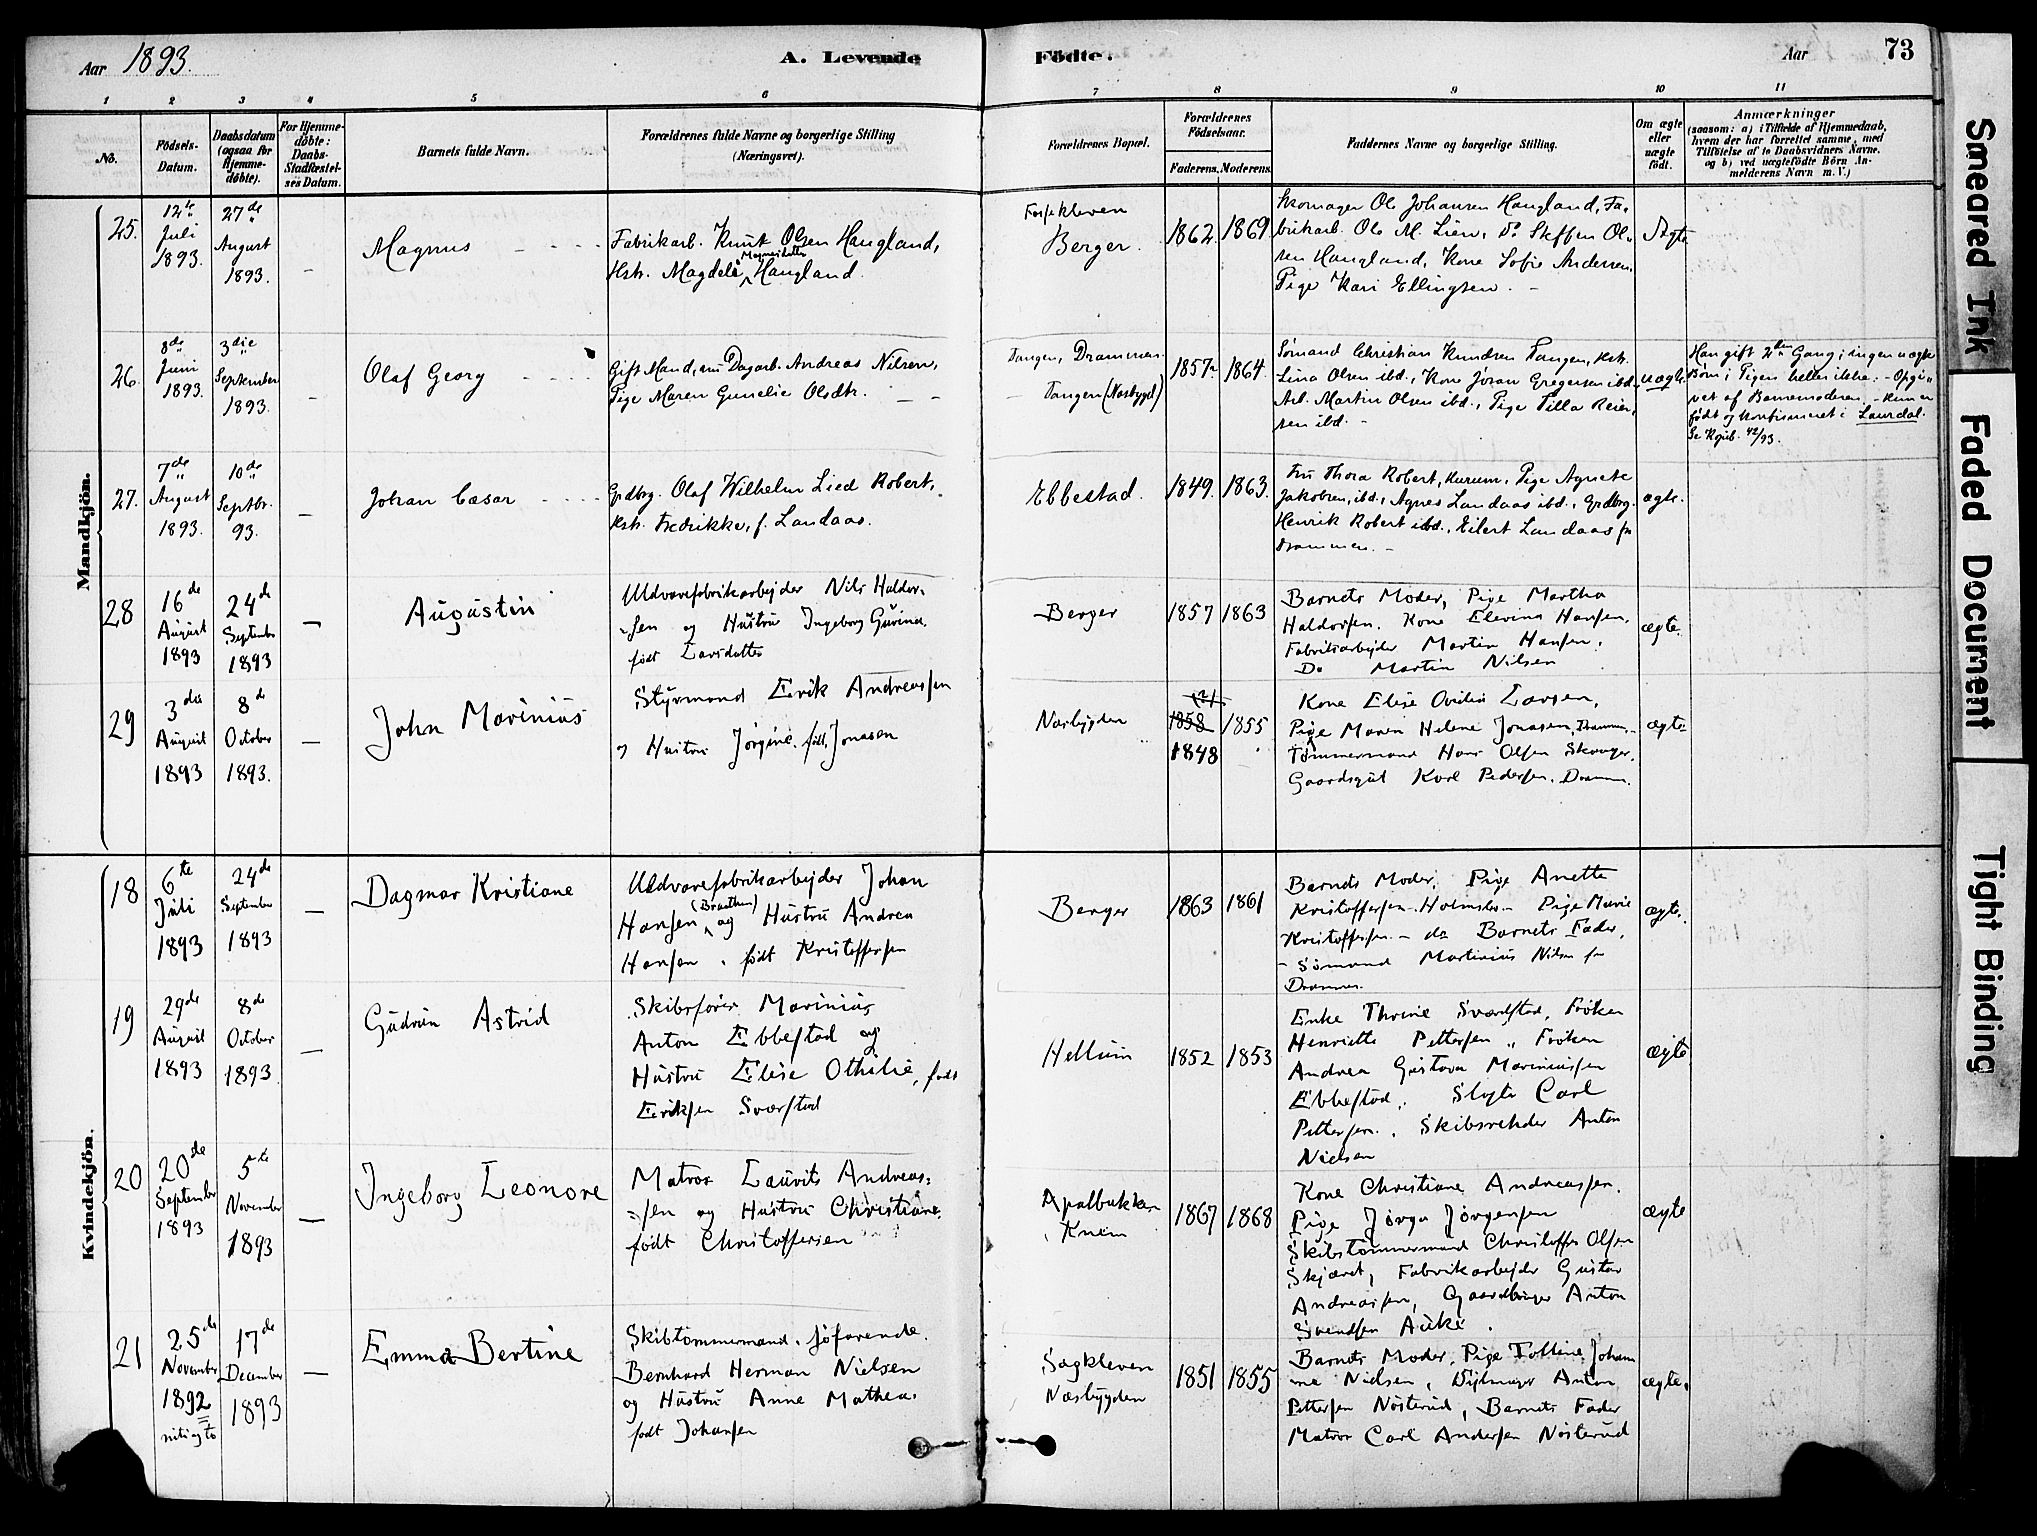 Aar 1893.
A. Levende Födte.
Aar
73
1 2 3 4 5 6 7 8 9 10 11
No.
Födsels-Datum.
Daabsdatum (ogsaa for Hjemme-döbte).
For Hjemme-döbte: Daabs-Stadfæstel-ses Datum.
Barnets fulde Navn.
Forældrenes fulde Navne og borgerlige Stilling (Næringsvei).
Forældrenes Bopæl.
Forældrenes Födselsaar.
Faderens. Moderens.
Faddernes Navne og borgerlige Stilling.
Om ægte eller uægte födt.
Anmærkninger
(saasom: a) i Tilfælde af Hjemmedaab,
hvem der har forrettet samme, med
Tilföielse af to Daabsvidners Navne,
og b) ved uægtefödte Börn An-
melderens Navn m. V.)
Mandkjön.
25.
12te Juli 1893.
27de August 1893.
–
Magnus
Fabrikarb. Knut Olsen Haugland,
Hstr. Magdeli Haugland.
Berger.
1862. 1869
Ole Johansen Haugland, Fa-
brikarb. Ole M. Lien, Do Steffen Ol-
sen Haugland, Kone Sofie Andersen,
Pige Kari Ellingsen. –
Ægte
26.
8de Juni 1893.
3die September 1893.
–
Olaf Georg
Gift Mand, Dagarb. Andreas Nilsen,
Pige Maren Gunelie Olsdtr.
Tangen, Drammen.
Tangen (Næsbygd)
1857 1864.
Sömand Christian Knudsen Tangen, Hstr.
Lina Olsen ibd., Kone Jöran Gregersen ibd.
Arb. Martin Olsen ibd., Pige Tilla Reier-
sen ibd. –
uægte.
Han gift 2den Gang; ingen uægte
Börn; Pigen heller ikke. – Opgi-
vet af Barnemoderen. – Hun er
födt og konfirmeret i Laurdal.
42/93.
27.
7de August 1893.
10de Septbr. 93.
–
Johan Cæsar
Grdbrg. Olaf Wilhelm Lied Robert,
Hstr. Fredrikke, f. Landaas.
Ebbestad.
1849. 1863.
Fru Thora Robert, Pige Agnete
Jakobsen, ibd., Agnes Landaas ibd., Grdbrg.
Henrik Robert ibd., Eilert Landaas fr
Drammen. –
ægte.
28
16de August 1893
24de September 1893
–
Augustin
Uldvarefabrikarbejder Nils Haldor-
sen og Hustru Ingeborg Gurine
født Larsdatter
Berger
1857 1863
Barnets Moder, Pige Martha
Haldorsen, Kone Elevine Hansen,
Fabrikarbejder Martin Hansen,
Do Martin Nilsen
ægte.
29
3die August 1893
8de October 1893.
–
John Marinius
Styrmand Erik Andreassen
og Hustru Jörgine, født Jonasen
Næsbygden
(?) 1858 1848
1855
Kone Elise Ovidia Larsen,
Pige Maren Helene Jonasen, Drammen
Tømmermand Hans Olsen Skauger,
Gaardsgut Karl Pedersen, Dramm.
ægte
Kvindekjön.
18
6te Juli 1893
24de September 1893
–
Dagmar Kristiane
Uldvarefabrikarbejder Johan
Hansen (Braathen) og Hustru Andrea
Hansen, født Kristoffersen
Berger
1863 1861
Barnets Moder, Pige Anette
Kristoffersen – – Pige Marie
Kristoffersen – do Barnets Fader,
– Sömand Martinius Nilsen fra
Drammen.
ægte.
19
29de August 1893
8de October 1893
–
Gudrun Astrid
Skibsfører Marinius
Anton Ebbestad og
Hustru Elise Othilie, født
Eriksen Sværstad
Hellum
1852 1853
Enke Thrine Sværstad, Fröken
Henriette Pettersen, Fröken
Andrea Gustava Mariniussen
Ebbestad, Carl
Pettersen, Skibsreder Anton
Nielsen
ægte
20
20de September 1893
5te November 1893
–
Ingeborg Leonore
Matros Laurits Andreas-
sen og Hustru Christiane
født Christoffersen
Apalbakken
Knem
1867 1868
Kone Christiane Andreassen,
Pige Jörga Jörgensen
Skibstømmermand Christoffer Olsen
Skjæret, Fabrikarbejder Gustav
Andreassen, Gaardbruger Anton
Svendsen Auke.
ægte
21
25de November 1892 niti og to
17de December 1893
–
Emma Bertine
Skibstømmermand, søfarende
Bernhard Herman Nielsen
og Hustru Anne Mathea
født Johansen
Sagkleven
Næsbygden
1851 1855
Barnets Moder, Pige Tolline Johan
ne Nielsen, Anton
Pettersen Nösterud, Barnets Fader
Matros Carl Andersen Nösterud
ægte.
Smeared Ink
Faded Document
Tight Binding